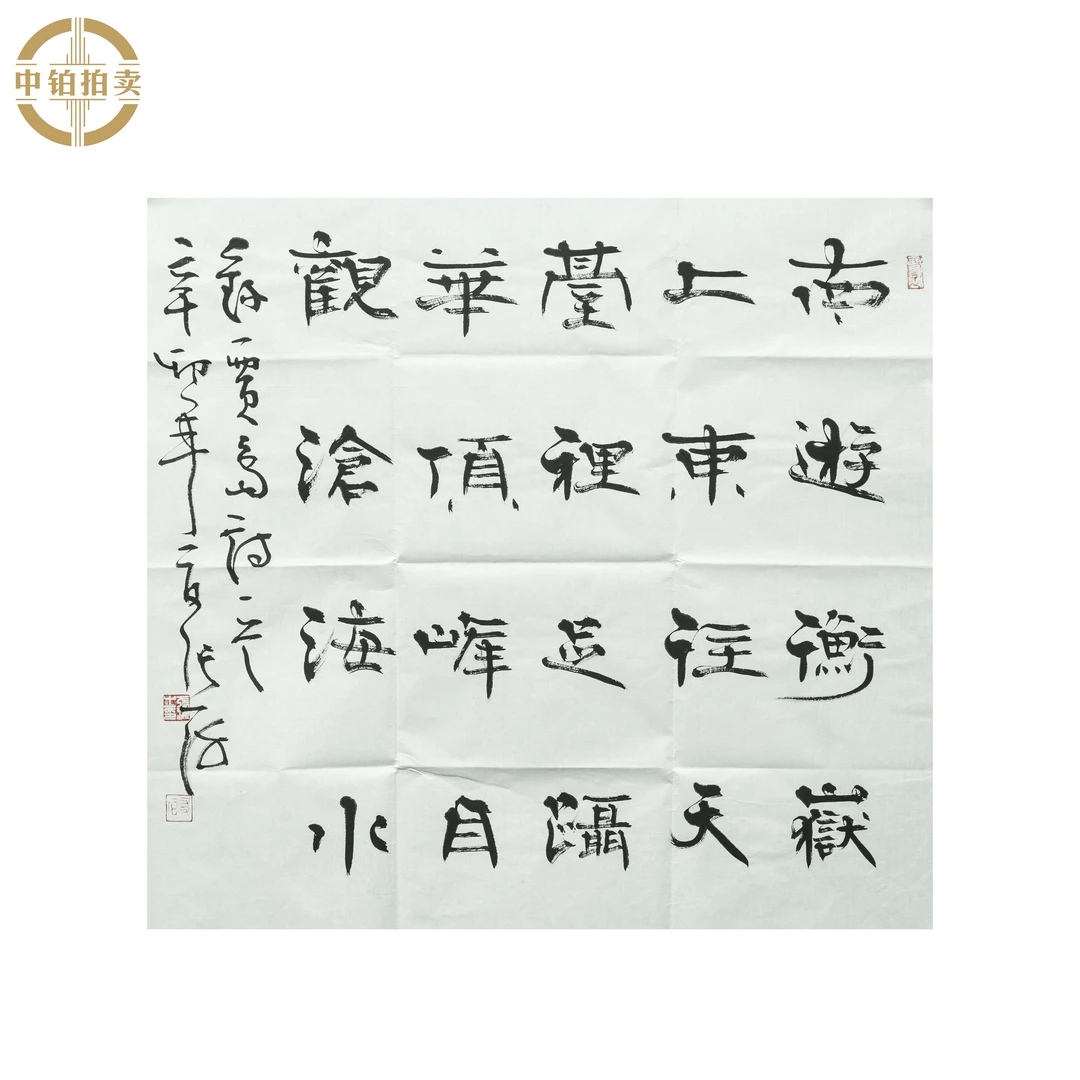 中铂拍卖
南遊衡嶽
上東往天
臺裡足躡
華頂峰目
觀滄海水
錄賈島詩一首
辛卯年夏張